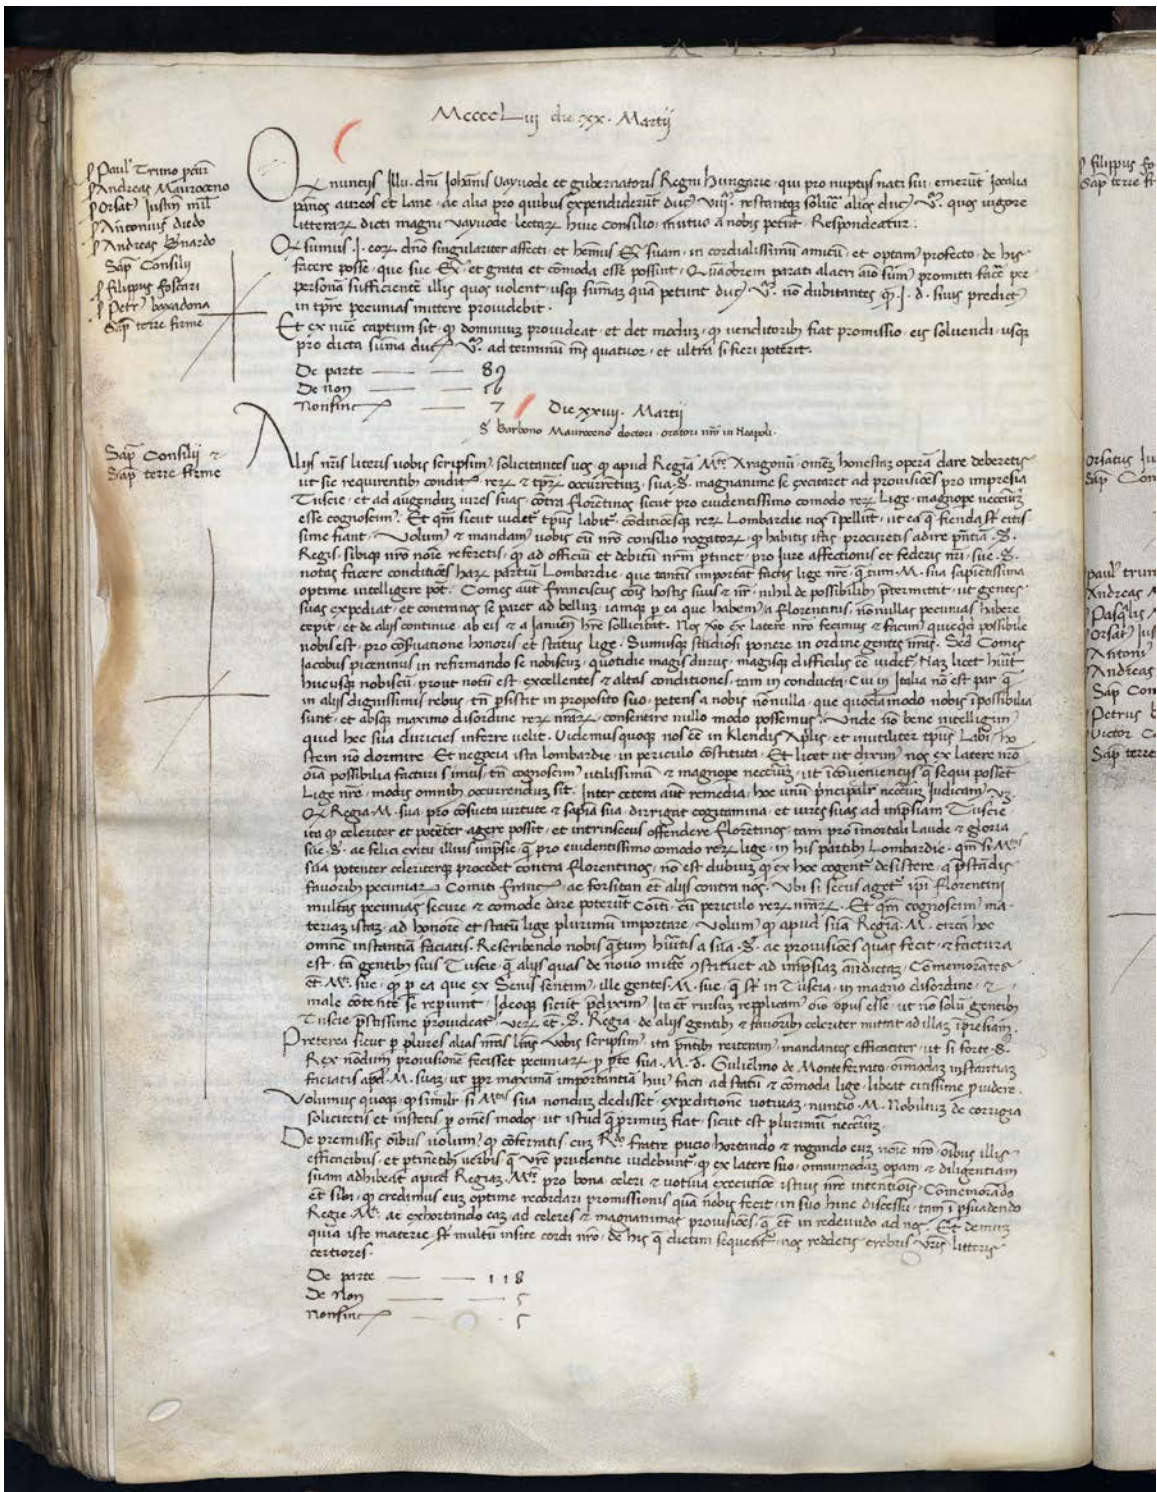 MccccLiij die xx. Martij
ʃ Paul' Truno pcur̄
ʃ Andreas Mauroceno
ʃ Orsat' Justin' mil̄
ʃ Antonius diedo
ʃ Andreas b̄nardo
Sap̄ Consilij
ʃ filippus foscari
ʃ Petr'
Sap̄ terre firme
Q nuncijs Illu. dn̄i Johān̄is Vayuode et gubernatoris Regni hungarie, qui pro nuptijs nati sui, emerūt Jocalia
pānos aureos et lane, ac alia pro quibus expendiderūt duc̄ restantq soluē alios duc̄ quos uigore
litterarꝫ dicti magni vayuode lectarꝫ huic Consilio, mutuo a nobis petūt. Respondeatur:
Q sumus .J. eorꝫ dn̄o singulariter affecti, et hēmus Ex̄ suam, in cordialissimū amicū, et optam' profecto, de his
facere posse, que sue Ex̄ et grata et cōmoda esse possint, Quāobrem parati alacri aīo sum' promitti facē per
personā sufficientē illis quos uolent, usq sumaꝫ quā petunt duc̄ nō dubitantes .J. d. suus predict'
in tp̄re pecunias mittere prouidebit.
Et ex nūc captum sit, ꝙ dominiū prouideat, et det modū, ꝙ uenditorib' fiat promissio, eis soluendi, usq
pro dicta suma duc̄ ad terminū mēs quatuor, et ultra si fieri poterit.
De parte — — 89
De non — — 16
Nonsinc̄ — 7
Die xxiiij. Martij
S̄ barbono Mauroceno doctori, oratori nr̄o in Neapoli.
Sap̄ Consilij ⁊
Sap̄ terre firme
Alijs nr̄is literis uobis scripsim' solicitantes uos, ꝙ apud Regiā M.tem Aragonū, omēꝫ honestaꝫ operā dare deberetis
ut sic requirentib' condit' rerꝫ ⁊ tp̄rꝫ occurrētiuꝫ, sua .S. magnanime se excitaret ad prouisiōes pro impresia
Tuscie, et ad augenduꝫ uires suas, cōtra florētinos sicut pro euidentissimo comodo rerꝫ Lige, magnope necc̄iuꝫ
esse cognoscim'. Et qm̄ sicut uidet' tp̄us labit', cōditiōesq rerꝫ Lombardie nos īpellūt, ut ea q fienda sūt citis
sime fiant, Volum' ⁊ mandam' uobis cū nr̄o consilio rogatorꝫ, ꝙ habitis istis, procuretis adire pn̄tiā .S.
Regis, sibiq nr̄o noīe referetis, ꝙ ad officiū et debitū nr̄m ptinet, pro iure affectionis et federis nr̄i, sue .S.
notas facere conditiōes harꝫ partiū Lombardie, que tantū important factis lige nr̄e, q̄tum .M. sua sapiētissima
optime intelligere pōt. Comes aūt franciscus cōis hostis suus ⁊ nr̄, nihil de possibilib' ptermittit, ut gentes
suas expediat, et contra nos se paret ad belluꝫ, iamq p ea que habem' a florentinis, nōnullas pecunias habere
cepit, et de alijs continue, ab eis ⁊ a Januēs hr̄e sollicitat. Nos ꝟo ex latere nr̄o fecimus ⁊ facim' quicq̄d possibile
nobis est, pro cōseruatione honoris et status lige. Sumusq studiosi ponere in ordine gentes nr̄as. Sed Comes
Jacobus piceninus in refirmando se nobiscuꝫ, quotidie magis durus, magisq difficilis eē uidet'. Naꝫ licet hūit
hucusq nobiscū, prout notū est, excellentes ⁊ altas conditiones, tam in conducta, cui in Italia nō est par q̄
in alijs dignissimis rebus, tn̄ psistit in proposito suo, petens a nobis nōnulla, que quodāmodo nobis īpossibilia
sunt, et absq maximo disordine rerꝫ nr̄arꝫ, consentire nullo modo possemus. Unde nō bene intelligim'
quid hec sua duricies inferre uelit. Uidemus quoq nos eē in klendis Aplis, et inutiliter tp̄us Labi, ho
stem nō dormire. Et negocia ista lombardie, in periculo cōstituta. Et licet ut dixim' nos ex latere nr̄o
oīa possibilia facturi simus, tn̄ cognoscim' utilissimū ⁊ magnope necc̄iuꝫ, ut īcōuenientijs q̄ sequi possēt
Lige nr̄e, modis omnib' occurrenduꝫ sit. Inter cetera aūt remedia, hoc unū pncipalr̄ necc̄iuꝫ Iudicam' vꝫ
Q Regia .M. sua, pro cōsueta uirtute ⁊ sapīa sua, dirrigat cogitamina, et uires suas ad imp̄siam Tuscie
ita ꝙ celeriter et potēter agere possit, et intrinsecus offendere florētinos, tam pro īmortali Laude ⁊ gloria
sue .S. ac felici exitu illius imp̄sie, q̄ pro euidentissimo comodo rerꝫ lige, in his partib' Lombardie. qm̄ si M.tas
sua potenter celeriterq procedet contra florentinos, nō est dubiuꝫ ꝙ ex hoc cogent' desistere, a pstādis
fauorib' pecuniarꝫ Comiti franc̄, ac forsitan ēt alijs contra nos. Ubi si secus aget' ip̄i florentini
multas pecunias secure ⁊ comode dare poterūt Coīti, cū periculo rerꝫ nr̄arꝫ. Et qm̄ cognoscim' ma-
teriaꝫ istaꝫ, ad honorē et statū lige plurimū importare, Volum' ꝙ apud suā Regiā .M. circa hoc
omnē instantiā faciatis. Rescribendo nobis q̄tum hūitis a sua .S. ac prouisiōes quas fecit, ⁊ factura
est, tā gentib' suis Tuscie, q̄ alijs quas de nouo mittē ɔstituet ad imp̄siaꝫ an̄dictaꝫ. Cōmemorātes
ēt M.ti sue, ꝙ p ea que ex Senis sentim', ille gentes .M. sue, q̄ sūt in Tuscia, in magno disordine, ⁊
male cōtētate se repiunt. Ideoq sicut p̄dixim', Ita ēt rursuꝫ replicam' oīo opus esse, ut nō solū gentib'
Tuscie p̄stissime prouideat', uerꝫ ēt .S. Regia, de alijs gentib' ⁊ fauorib' celeriter mittat ad illaꝫ īpresiam.
Preterea sicut p plures alias nr̄as lr̄as vobis scripsim', ita pn̄tib' reiteram', mandantes efficaciter, ut si forte .S.
Rex nōdum prouisionē fecisset pecuniarꝫ, p pte sua .M. d. Gulielmo de Monteferrato, oīmodaꝫ instantiaꝫ
faciatis apd̄ .M. suaꝫ, ut ppr̄ maximā importantiā hui' facti, ad statū ⁊ cōmoda lige, libeat citissime puidere.
Volumus quoq, ꝙ similr̄ si M.tas sua nonduꝫ dedisset expeditionē uotiuaꝫ, nuntio .M. Nobiliuꝫ de corrigia
solicitetis et instetis p omēs modos, ut istud q̄ primuꝫ fiat, sicut est plurimū necc̄iuꝫ.
De premissis oībus uolum' ꝙ cōferatis cuꝫ R.do fratre pucio hortando ⁊ rogando euꝫ noīe nr̄o, oībus illis
efficacibus, et ptinētib' uerbis q̄ vr̄e prudentie uidebunt', ꝙ ex latere suo, omnimodaꝫ opam ⁊ diligentiam
suam adhibeat apud Regiaꝫ .M.tem pro bona celeri ⁊ uotiua executiōe istius nr̄e intentiōis, Cōmemorādo
ēt sibi, ꝙ credimus euꝫ optime recordari promissionis quā nobis fecit, in suo hinc discessu, tam ī psuadendo
Regie .M.ti ac exhortando eaꝫ ad celeres ⁊ magnanimas prouisiōes, q̄ ēt in redeundo ad nos. Et demuꝫ
quia iste materie sūt multū insite cordi nr̄o, de his q̄ dietim sequent', nos reddetis crebris vr̄is litteris
certiores.
De parte — — 118
De Non — — 5
Nonsinc̄ — 5